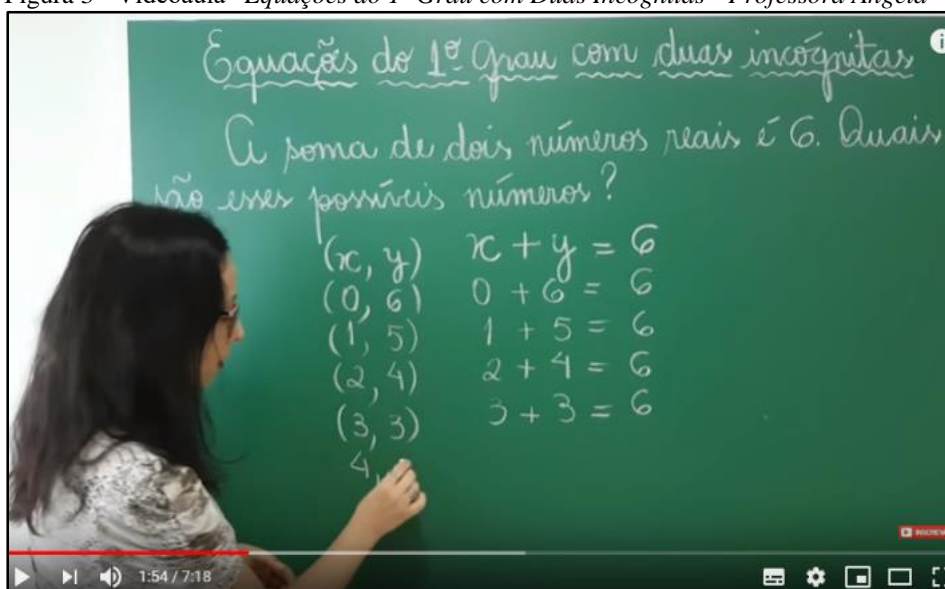 Figura 3 - Videoaula "Equações do 1º Grau com Duas Incógnitas - Professora Angela"
Equações do 1º Grau com duas incógnitas
A soma de dois números reais é 6. Quais
são esses possíveis números?
(x, y) x + y = 6
(0, 6) 0 + 6 = 6
(1, 5) 1 + 5 = 6
(2, 4) 2 + 4 = 6
(3, 3) 3 + 3 = 6
4,
1:54 / 7:18